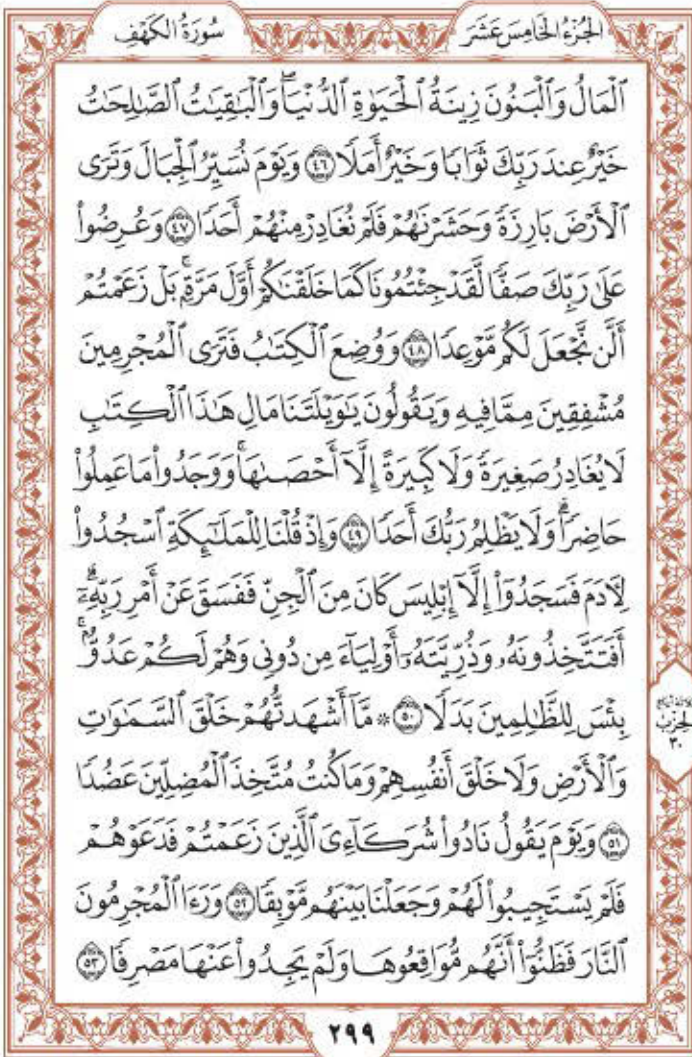 الجُزْءُ الخَامِسَ عَشَرَ
سُورَةُ الكَهْفِ
ٱلْمَالُ وَٱلْبَنُونَ زِينَةُ ٱلْحَيَوٰةِ ٱلدُّنْيَاۖ وَٱلْبَٰقِيَٰتُ ٱلصَّٰلِحَٰتُ
خَيْرٌ عِندَ رَبِّكَ ثَوَابٗا وَخَيْرٌ أَمَلٗا ٤٦ وَيَوْمَ نُسَيِّرُ ٱلْجِبَالَ وَتَرَى
ٱلْأَرْضَ بَارِزَةٗ وَحَشَرْنَٰهُمْ فَلَمْ نُغَادِرْ مِنْهُمْ أَحَدٗا ٤٧ وَعُرِضُوا۟
عَلَىٰ رَبِّكَ صَفّٗا لَّقَدْ جِئْتُمُونَا كَمَا خَلَقْنَٰكُمْ أَوَّلَ مَرَّةِۭۚ بَلْ زَعَمْتُمْ
أَلَّن نَّجْعَلَ لَكُم مَّوْعِدٗا ٤٨ وَوُضِعَ ٱلْكِتَٰبُ فَتَرَى ٱلْمُجْرِمِينَ
مُشْفِقِينَ مِمَّا فِيهِ وَيَقُولُونَ يَٰوَيْلَتَنَا مَالِ هَٰذَا ٱلْكِتَٰبِ
لَا يُغَادِرُ صَغِيرَةٗ وَلَا كَبِيرَةً إِلَّآ أَحْصَىٰهَاۚ وَوَجَدُوا۟ مَا عَمِلُوا۟
حَاضِرٗاۗ وَلَا يَظْلِمُ رَبُّكَ أَحَدٗا ٤٩ وَإِذْ قُلْنَا لِلْمَلَٰٓئِكَةِ ٱسْجُدُوا۟
لِأٓدَمَ فَسَجَدُوٓا۟ إِلَّآ إِبْلِيسَ كَانَ مِنَ ٱلْجِنِّ فَفَسَقَ عَنْ أَمْرِ رَبِّهِۦٓۗ
أَفَتَتَّخِذُونَهُۥ وَذُرِّيَّتَهُۥٓ أَوْلِيَآءَ مِن دُونِي وَهُمْ لَكُمْ عَدُوُّۢۚ
بِئْسَ لِلظَّٰلِمِينَ بَدَلٗا ٥٠ ۞ مَّآ أَشْهَدتُّهُمْ خَلْقَ ٱلسَّمَٰوَٰتِ
وَٱلْأَرْضِ وَلَا خَلْقَ أَنفُسِهِمْ وَمَا كُنتُ مُتَّخِذَ ٱلْمُضِلِّينَ عَضُدٗا
٥١ وَيَوْمَ يَقُولُ نَادُوا۟ شُرَكَآءِيَ ٱلَّذِينَ زَعَمْتُمْ فَدَعَوْهُمْ
فَلَمْ يَسْتَجِيبُوا۟ لَهُمْ وَجَعَلْنَا بَيْنَهُم مَّوْبِقٗا ٥٢ وَرَءَا ٱلْمُجْرِمُونَ
ٱلنَّارَ فَظَنُّوٓا۟ أَنَّهُم مُّوَاقِعُوهَا وَلَمْ يَجِدُوا۟ عَنْهَا مَصْرِفٗا ٥٣
الحِزْبُ
٣٠
٢٩٩